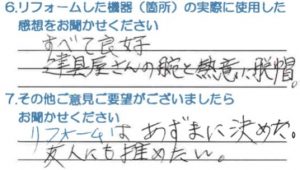 6.リフォームした機器（箇所）の実際に使用した
感想をお聞かせください
すべて良好
建具屋さんの腕と熱意に脱帽。
7.その他ご意見ご要望がございましたら
お聞かせください
リフォームはあずまに決めた。
友人にも推めたい。